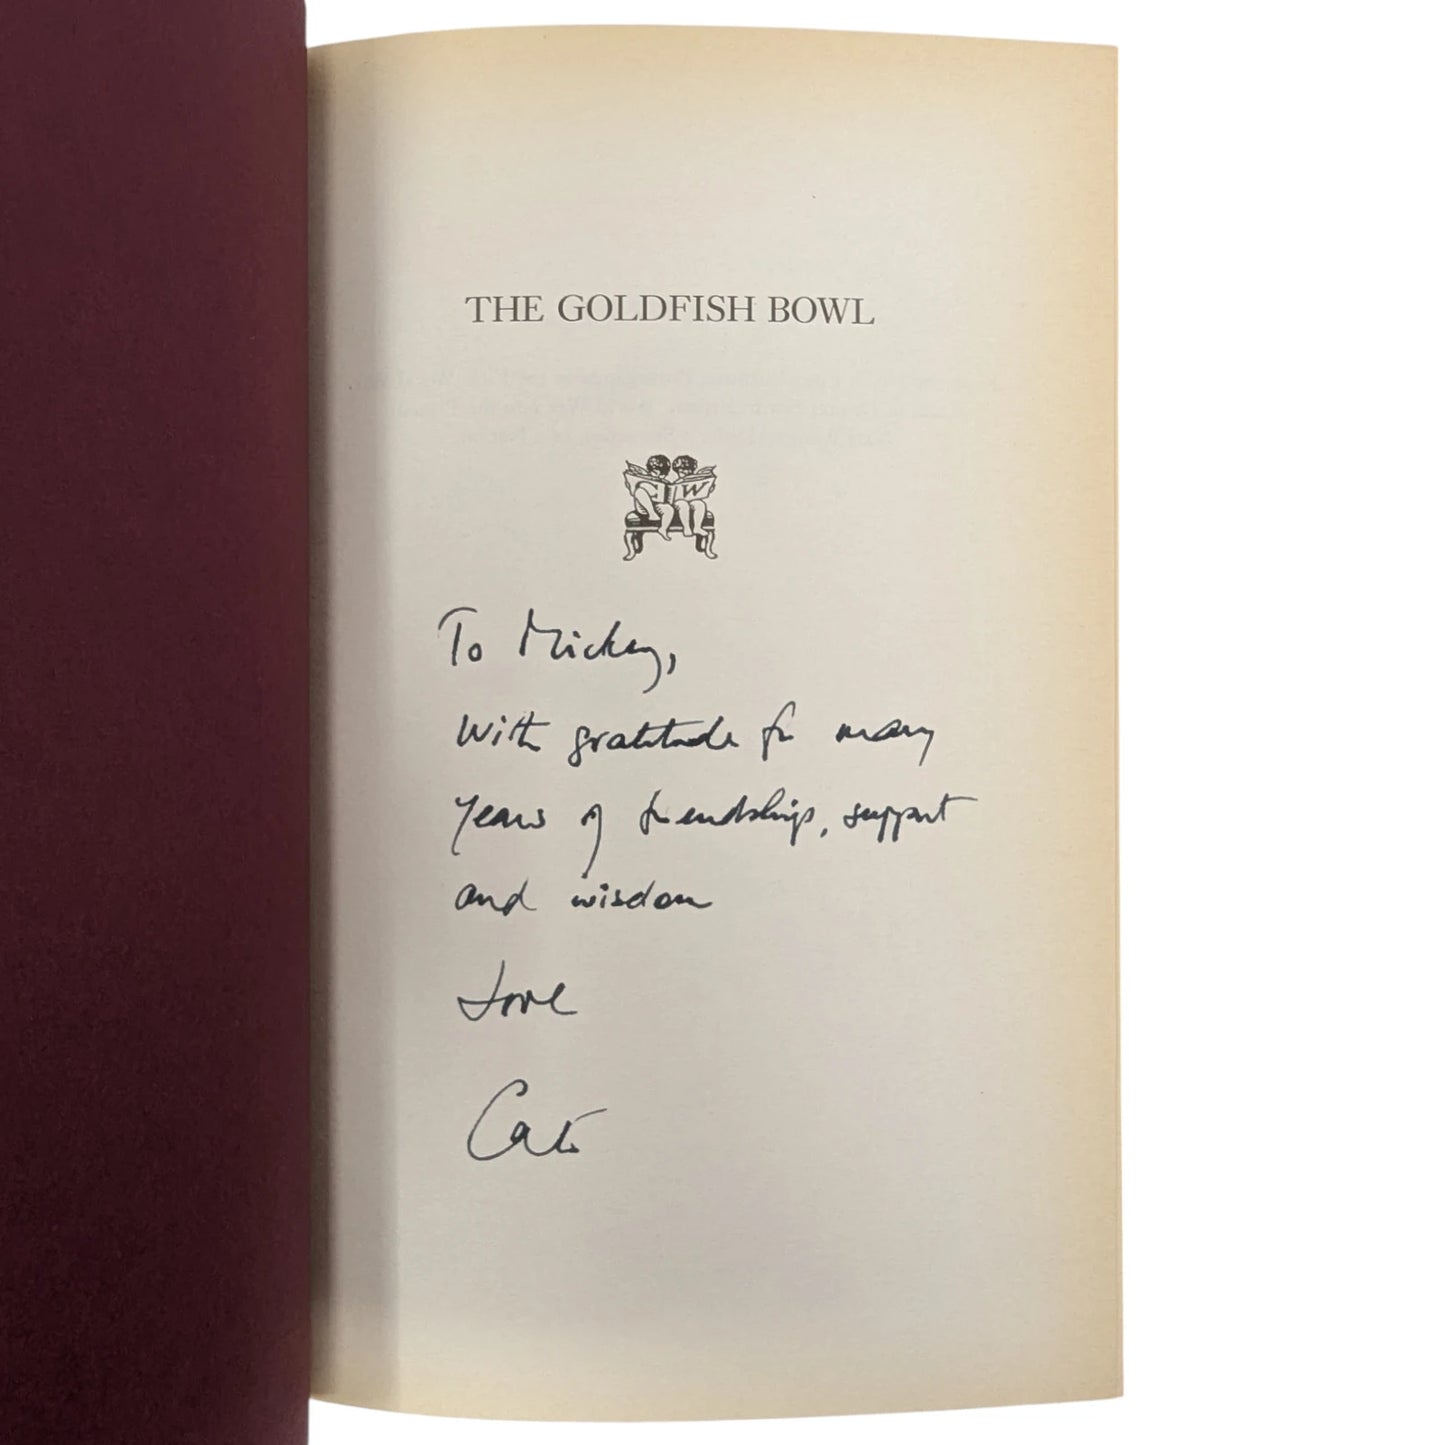 THE GOLDFISH BOWL
C W
To Mickey,
With gratitude for many
years of friendship, support
and wisdom
Love